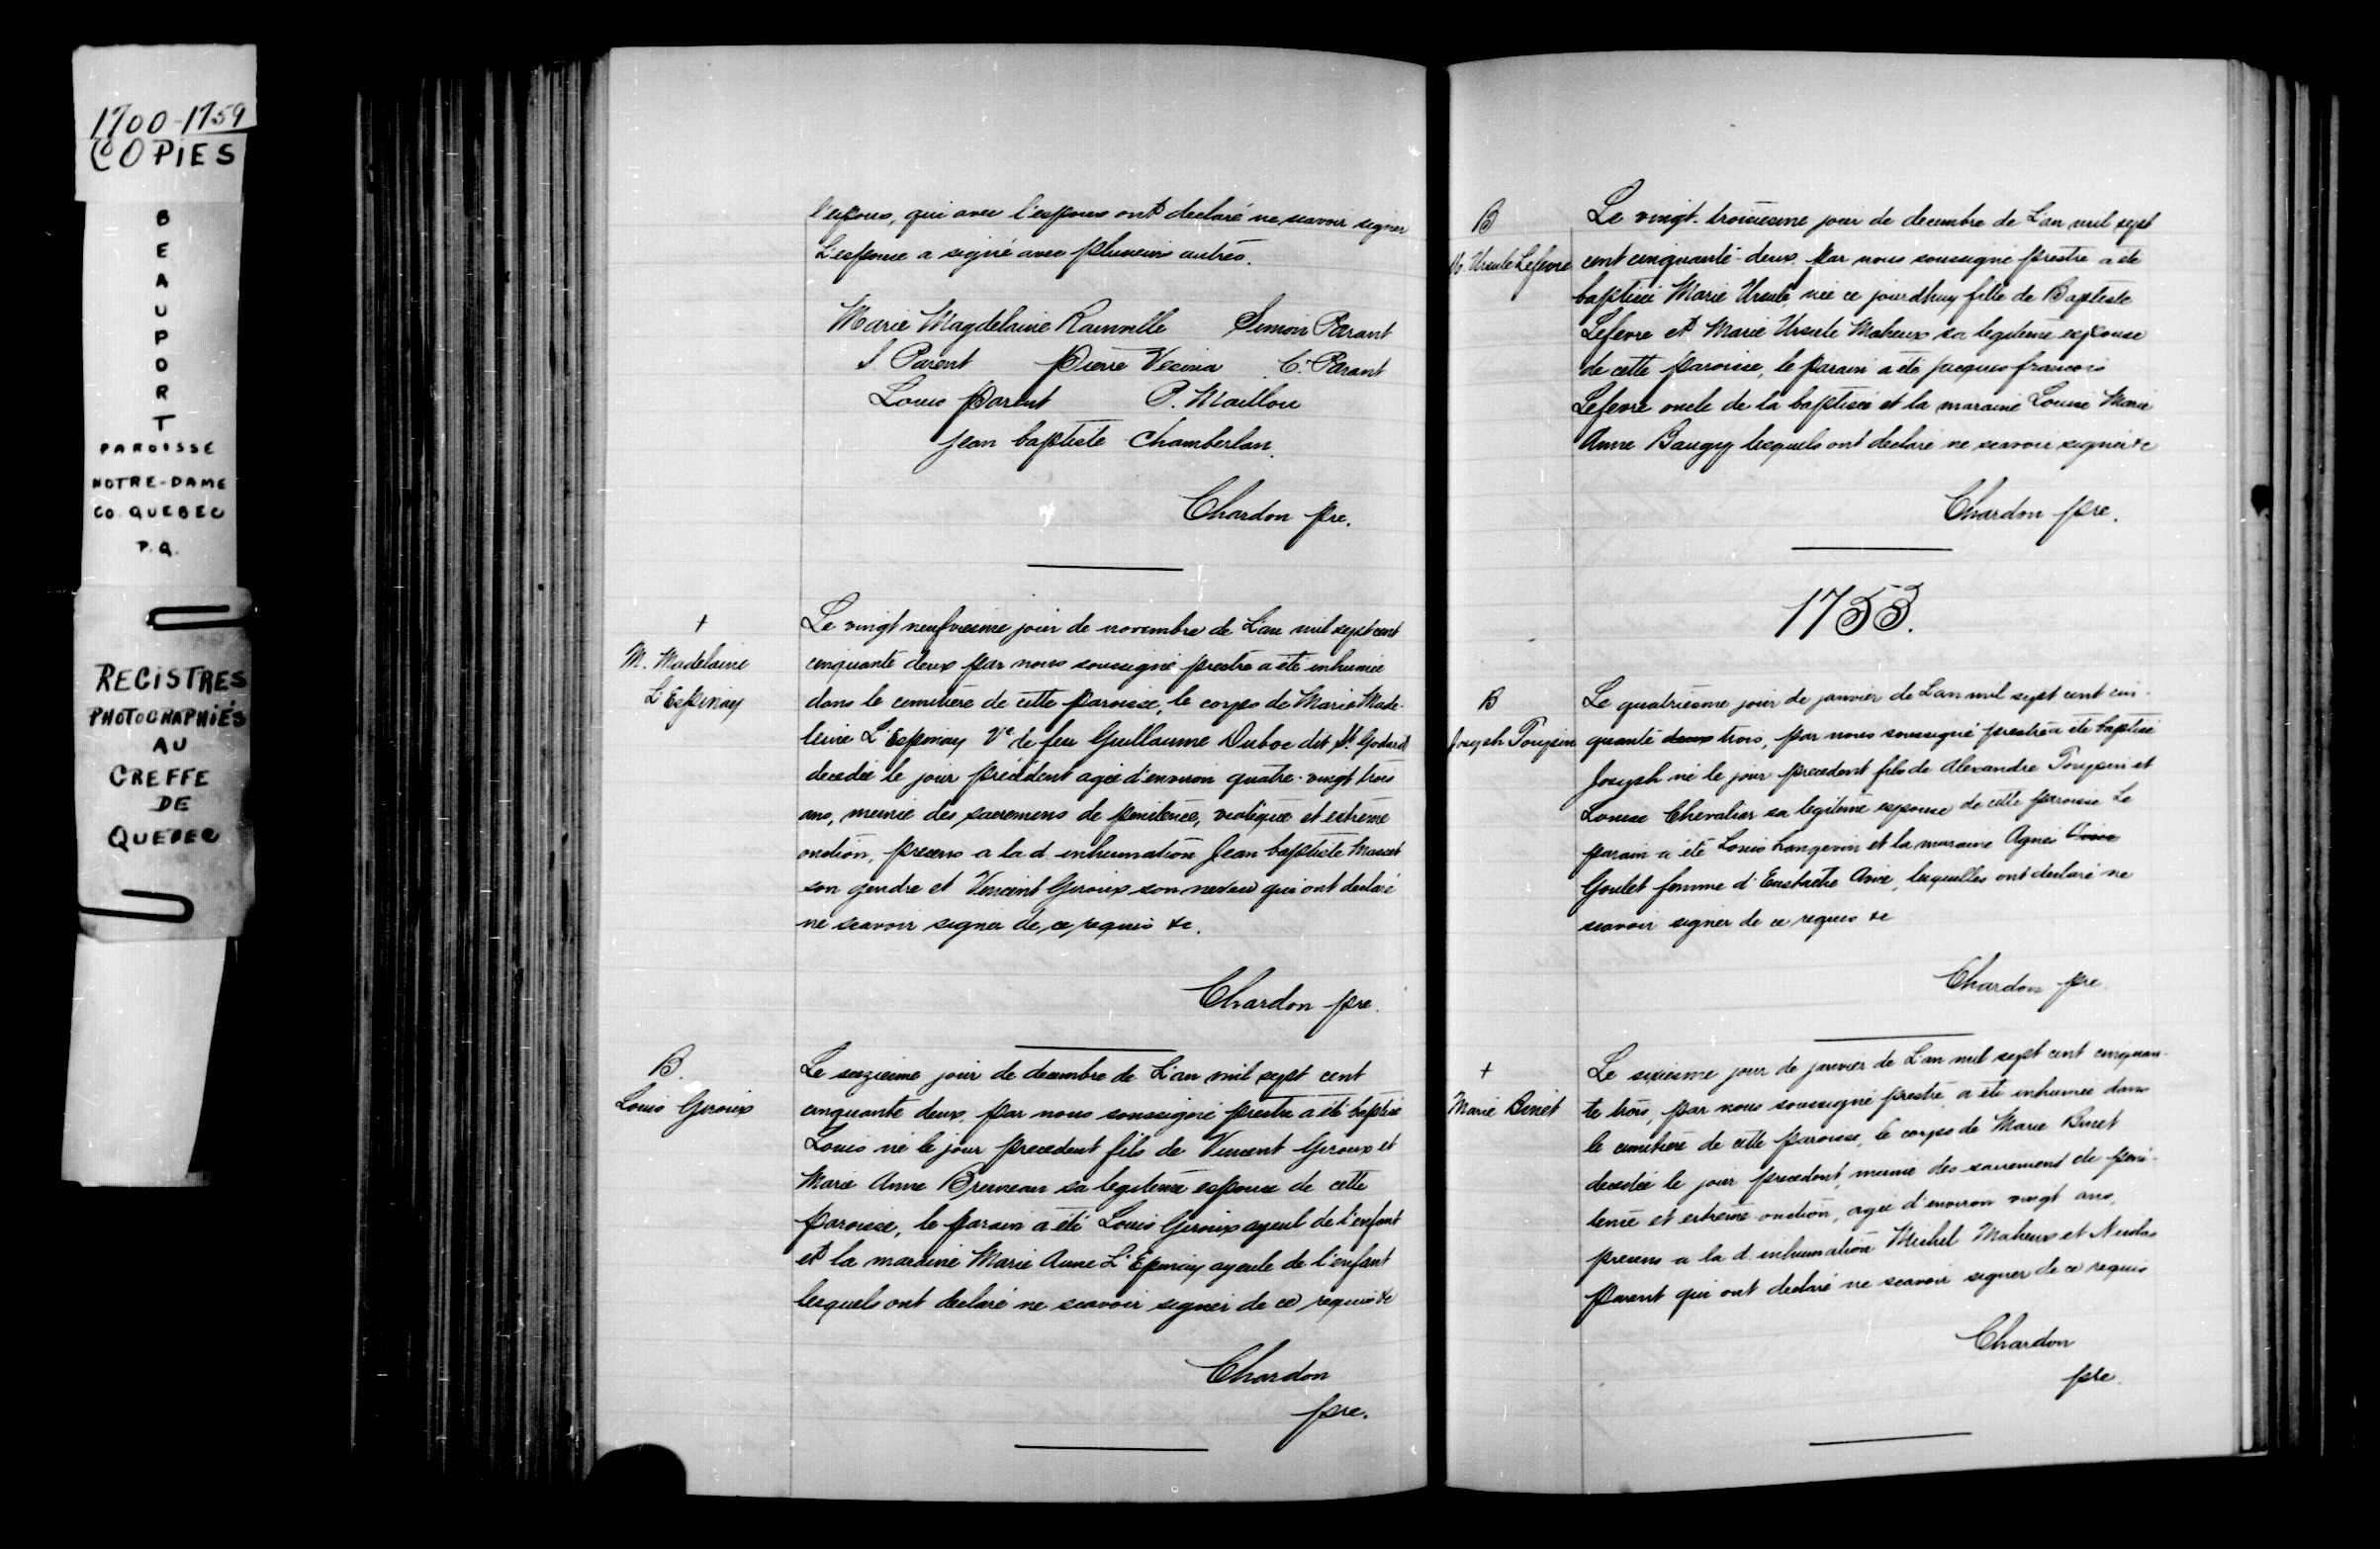 1700-1759
COPIES
BEAUPORT
PAROISSE
NOTRE-DAME
CO. QUEBEC
P.Q.
REGISTRES
PHOTOGRAPHIÉS
AU
GREFFE
DE
QUEBEC
l'espous, qui avec l'espous ont declaré ne scavoir signer
L'espouse a signé avec plusieurs autres.
Marie Magdelaine Rainville Simon Parant
S Parent Pierre Vesina C. Parant
Louis Parent P. Maillou
jean baptiste Chamberlan.
Chardon pre.
+
M. Madelaine
L'Espinay
Le vingt neufviesme jour de novembre de L'an mil sept cent
cinquante deux par nous soussigné prestre a été inhumée
dans le cemitiere de cette paroisse, le corps de Marie Made-
leine L'Espinay Ve de feu Guillaume Duboc dit St. Godard
decedée le jour précédent agée d'environ quatre-vingt trois
ans, munie des sacremens de penitence, viatique et extreme
onction, presens a la d. inhumation Jean baptiste Marcet
son gendre et Vincent Giroux son neveu qui ont declaré
ne scavoir signer de ce requis &c.
Chardon pre.
B.
Louis Giroux
Le seizieme jour de decembre de L'an mil sept cent
cinquante deux, par nous soussigné prestre a été baptisé
Louis né le jour precedent fils de Vincent Giroux et
Marie Anne Bruneau sa legitime espouse de cette
paroisse, le parain a été Louis Giroux ayeul de l'enfant
et la maraine Marie Anne L'Epinay ayeule de l'enfant
lesquels ont declaré ne scavoir signer de ce requis &c
Chardon
pre.
B
M. Ursule Lefevre
Le vingt-troisiesme jour de decembre de L'an mil sept
cent cinquante-deux par nous soussigné prestre a été
baptisée Marie Ursule, née ce jourdhuy fille de Baptiste
Lefevre et Marie Ursule Maheux sa legitime espouse
de cette paroisse, le parain a été jacques francois
Lefevre oncle de la baptisée et la maraine Louise Marie
Anne Baugy lesquels ont declaré ne scavoir signer &c
Chardon pre.
1753.
B
Joseph Toupin
Le quatriesme jour de janvier de L'an mil sept cent cin-
quante deux trois, par nous soussigné prestre a été baptisé
Joseph né le jour precedent fils de Alexandre Toupin et
Louise Chevalier sa legitime espouse de cette paroisse Le
parain a été Louis Langevin et la maraine Agnes
Goulet femme d'Eustache Aivé, lesquelles ont declaré ne
scavoir signer de ce requis &c
Chardon pre.
+
Marie Binet
Le sixiesme jour de janvier de L'an mil sept cent cinquan-
te trois, par nous soussigné prestre, a été inhumée dans
le cimitiere de cette paroisse, le corps de Marie Binet
decedée le jour precedent, munie des sacrement de peni-
tence et extreme onction, agée d'environ vingt ans,
presens a la d. inhumation Michel Maheux et Nicolas
Parent qui ont declaré ne scavoir signer de ce requis
Chardon
pre.